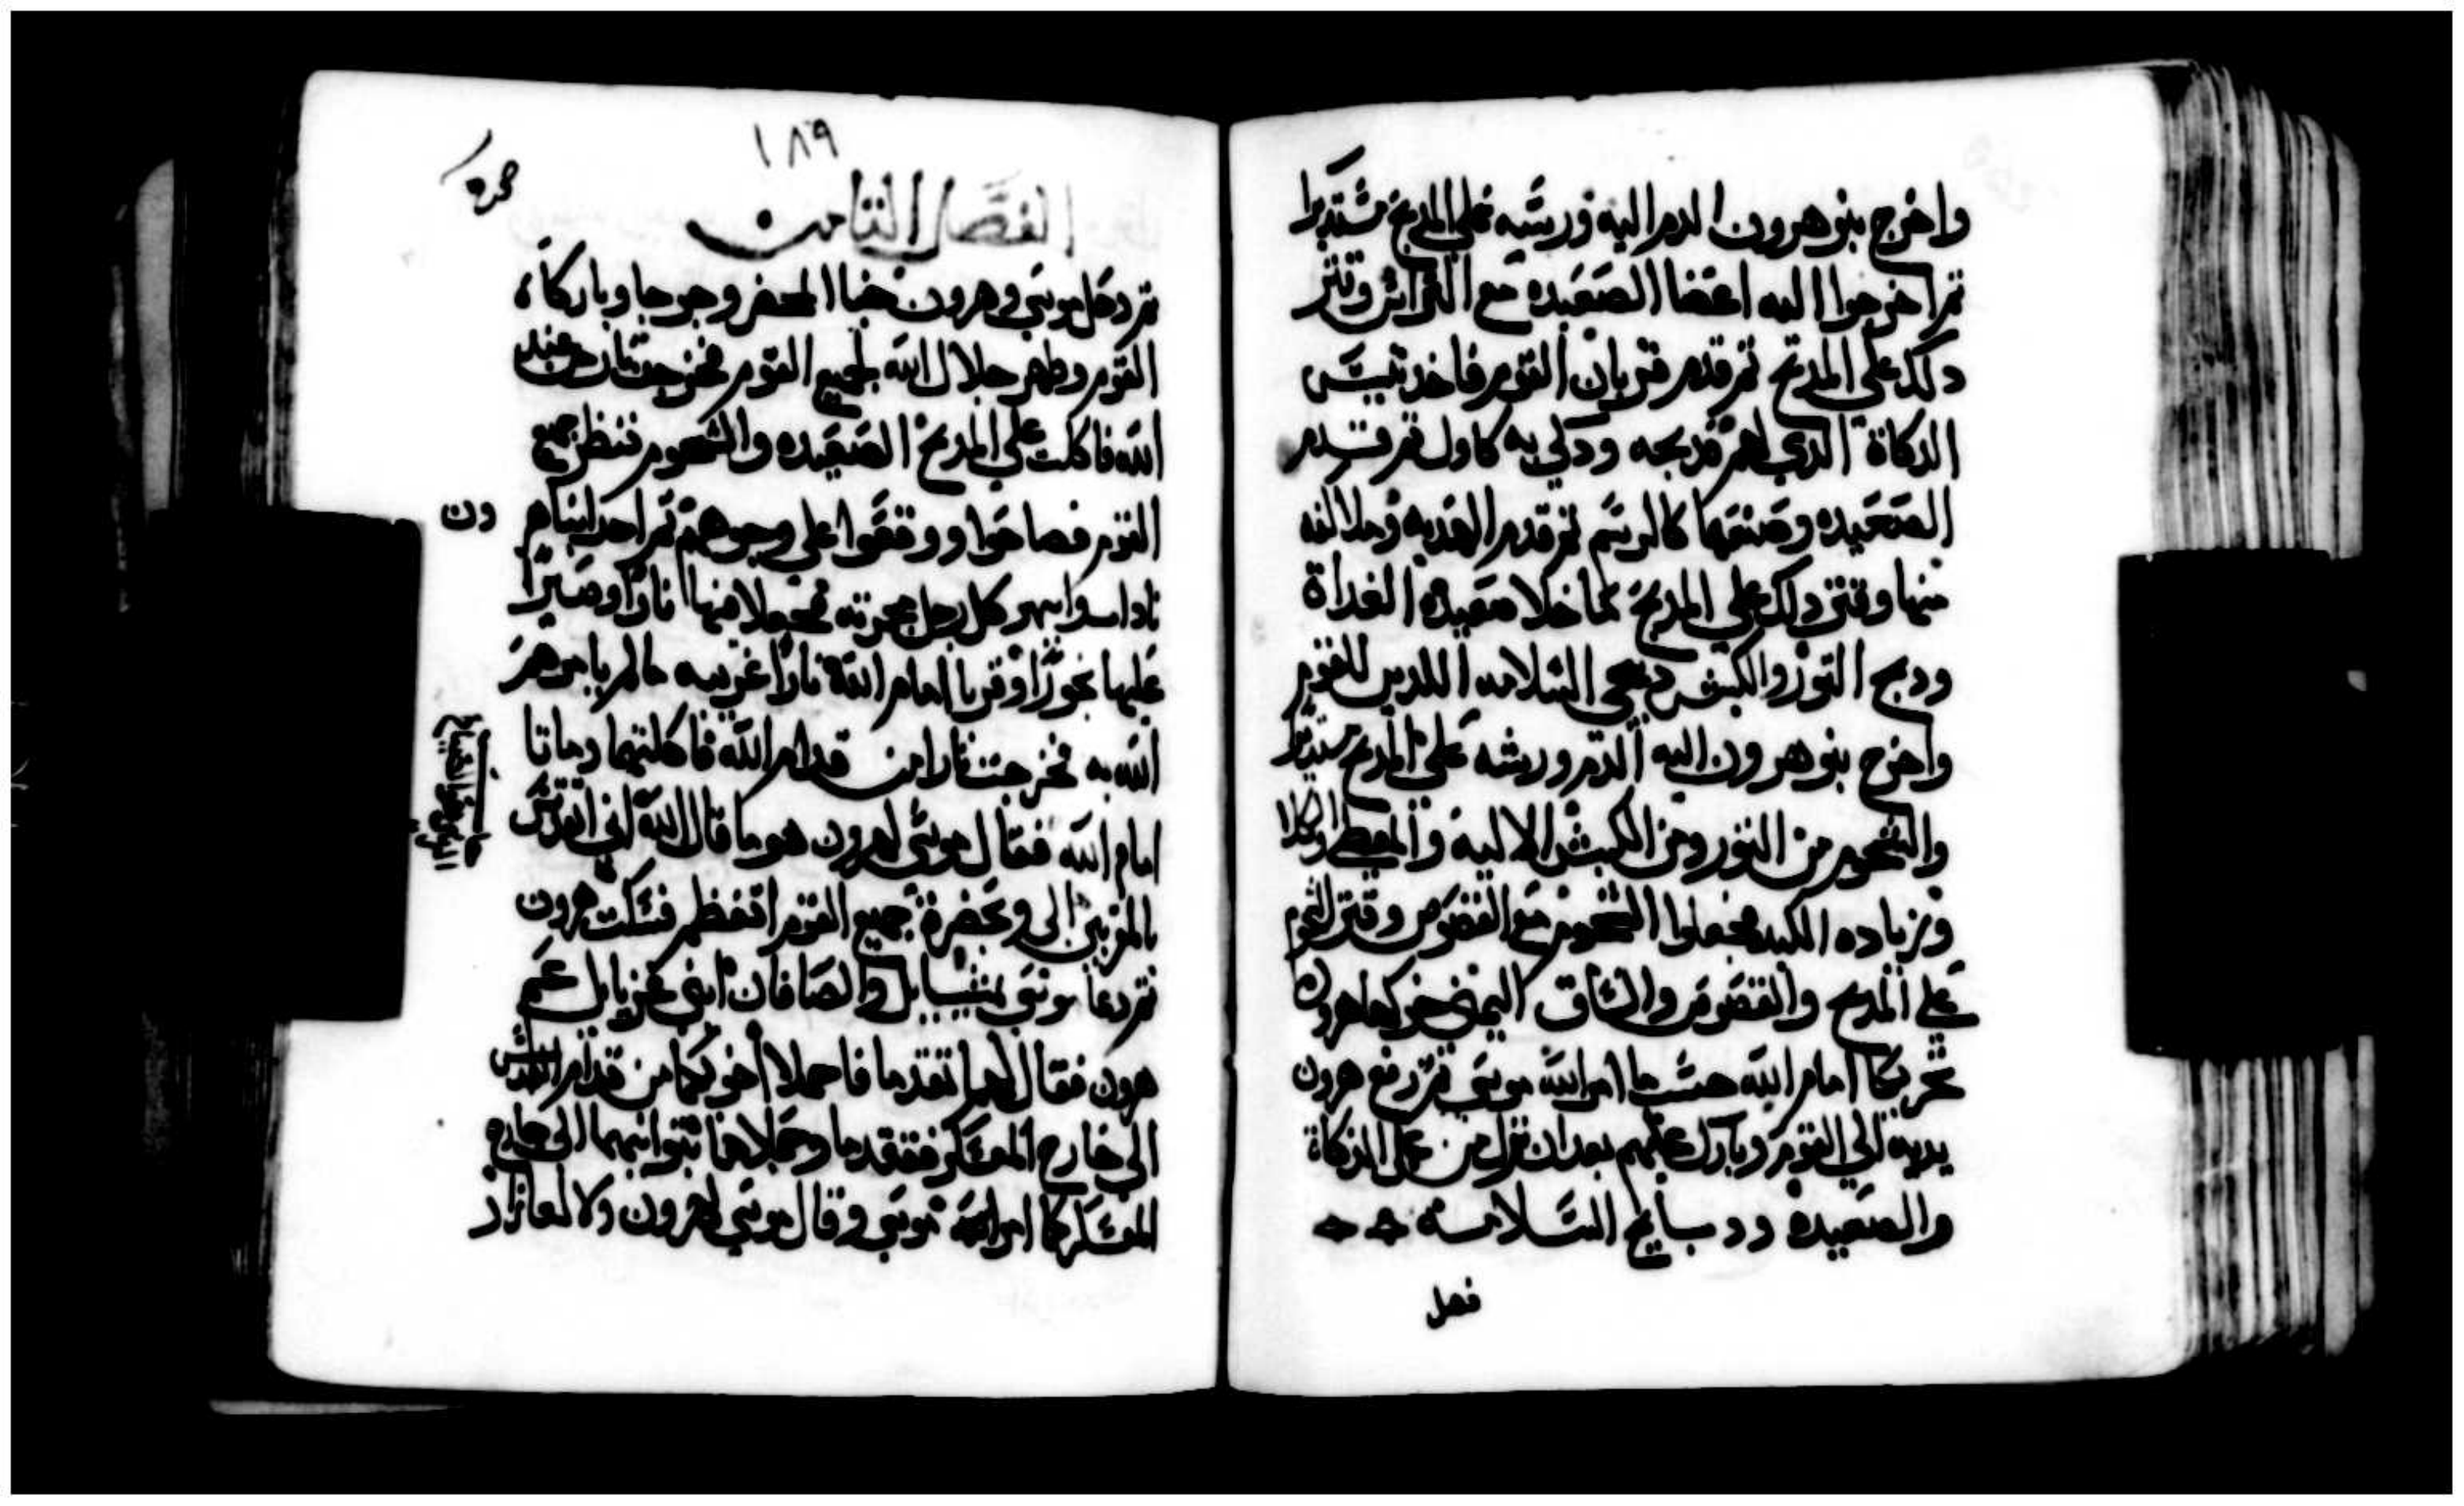 واخرج بنو هرون الدم اليه ورشه علي المدبح مستديرا
تم اخرجوا اليه اعضا الصعيده مع الراس وقتر
دلك علي المدبح تم قدم قربان القوم فاخد تيس
الدكاة الدي لهم فدبحه ودكي به كاول تم قدم
الصعيده وصنعها كالرسم تم قدم الهديه وملا كفه
منها وقتر دلك علي المدبح ما خلا صعيدة الغداة
ودبح التور والكبش دبحي السلامه اللدين للقوم
واخرج بنو هرون اليه الدم ورشه علي المدبح مستديرا
والشحوم من التور ومن الكبش الاليه والمغطا والكلا
وزياده الكبد فجعلوا الشحوم مع القصوص وقتر الشحوم
علي المدبح والقصوص والساق اليمني حركها هرون
تحريكا امام الله حسب ما امر الله موسي تم رفع هرون
يديه الي القوم وبارك عليهم بعد ان نزل من عمل الدكاة
والصعيده ودبايح السلامه
فصل
١٨٩
الفصل التامن
تم دخل موسي وهرون خبا المحضر وخرجا وباركا
القوم وظهر جلال الله لجميع القوم فخرجت نار من عند
الله فاكلت علي المدبح الصعيده والشحوم فنظر جميع
القوم فصاحوا ووقعوا علي وجوههم تم اخد ابنا هر
ون
ناداب وابيهو كل رجل مجمرته فجعلا فيها نارا وصيرا
عليها بخورا وقربا امام الله نارا غريبه ما لم يامرهم
الله به فخرجت نار من قدام الله فاكلتهما وماتا
امام الله فقال موسي لهرون هو ما قال الله اني اتقدس
بالمقربين الي وبحضرة جميع القوم اتعظم فسكت هرون
تم دعا موسي ميشايل والصافان ابني عزيايل عم
هرون فقال لهما تقدما فاحملا اخويكما من قدام القدس
الي خارج المعسكر فتقدما وحملاهما بتوابهما الي خارج
المعسكر كما امر الله موسي وقال موسي لهرون ولالعازار